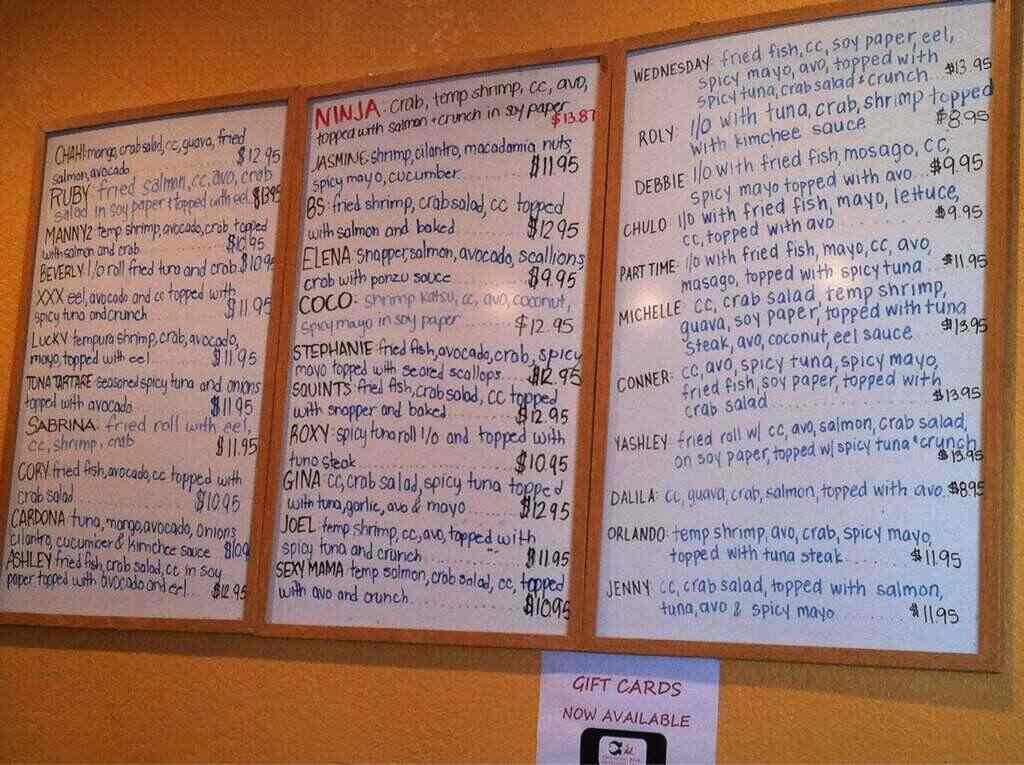 CHAHI: mango, crab salad, cc, guava, fried
salmon, avocado $12.95
RUBY fried salmon, cc, avo, crab
salad in soy paper & topped with eel. $13.95
MANNY2 temp shrimp, avocado, crab topped
with salmon and crab $10.95
BEVERLY I/o roll fried tuna and crab $10.95
XXX eel, avocado and cc topped with
spicy tuna and crunch $11.95
LUCKY tempura shrimp, crab, avocado,
mayo, topped with eel $11.95
TUNA TARTARE: seasoned spicy tuna and onions
topped with avocado $11.95
SABRINA: fried roll with eel,
cc, shrimp, crab $11.95
CORY fried fish, avocado, cc topped with
crab salad $10.95
CARDONA tuna, mango, avocado, onions
cilantro, cucumber & kimchee sauce $10.9
ASHLEY fried fish, crab salad, cc in soy
paper topped with avocado and eel $12.95
NINJA: crab, temp shrimp, cc, avo,
topped with salmon + crunch in soy paper
$13.87
JASMINE: shrimp, cilantro, macadamia nuts
spicy mayo, cucumber $11.95
BS: fried shrimp, crab salad, cc topped
with salmon and baked $12.95
ELENA snapper, salmon, avocado, scallions
crab with ponzu sauce $9.95
COCO: shrimp katsu, cc, avo, coconut,
spicy mayo in soy paper $12.95
STEPHANIE: fried fish, avocado, crab, spicy
mayo topped with seared scallops $12.95
SQUINTS: fried fish, crab salad, cc topped
with snapper and baked $12.95
ROXY: spicy tuna roll I/o and topped with
tuna steak $10.95
GINA cc, crab salad, spicy tuna topped
with tuna, garlic, avo & mayo $12.95
JOEL: temp shrimp, cc, avo, topped with
spicy tuna and crunch $11.95
SEXY MAMA: temp salmon, crab salad, cc, topped
with avo and crunch $10.95
WEDNESDAY: fried fish, cc, soy paper, eel,
spicy mayo, avo, topped with
spicy tuna, crab salad & crunch $13.95
ROLY: I/o with tuna, crab, shrimp topped
with kimchee sauce $8.95
DEBBIE I/o with fried fish, mosago, cc,
spicy mayo topped with avo $9.95
CHULO: I/o with fried fish, mayo, lettuce,
cc, topped with avo $9.95
PART TIME: I/o with fried fish, mayo, cc, avo,
masago, topped with spicy tuna $11.95
MICHELLE cc, crab salad, temp shrimp,
guava, soy paper, topped with tuna
steak, avo, coconut, eel sauce $13.95
CONNER: cc, avo, spicy tuna, spicy mayo,
fried fish, soy paper, topped with
crab salad $13.95
YASHLEY: fried roll w/ cc, avo, salmon, crab salad,
on soy paper, topped w/ spicy tuna & crunch
$13.95
DALILA: cc, guava, crab, salmon, topped with avo $8.95
ORLANDO: temp shrimp, avo, crab, spicy mayo,
topped with tuna steak $11.95
JENNY: cc, crab salad, topped with salmon,
tuna, avo & spicy mayo $11.95
GIFT CARDS
NOW AVAILABLE